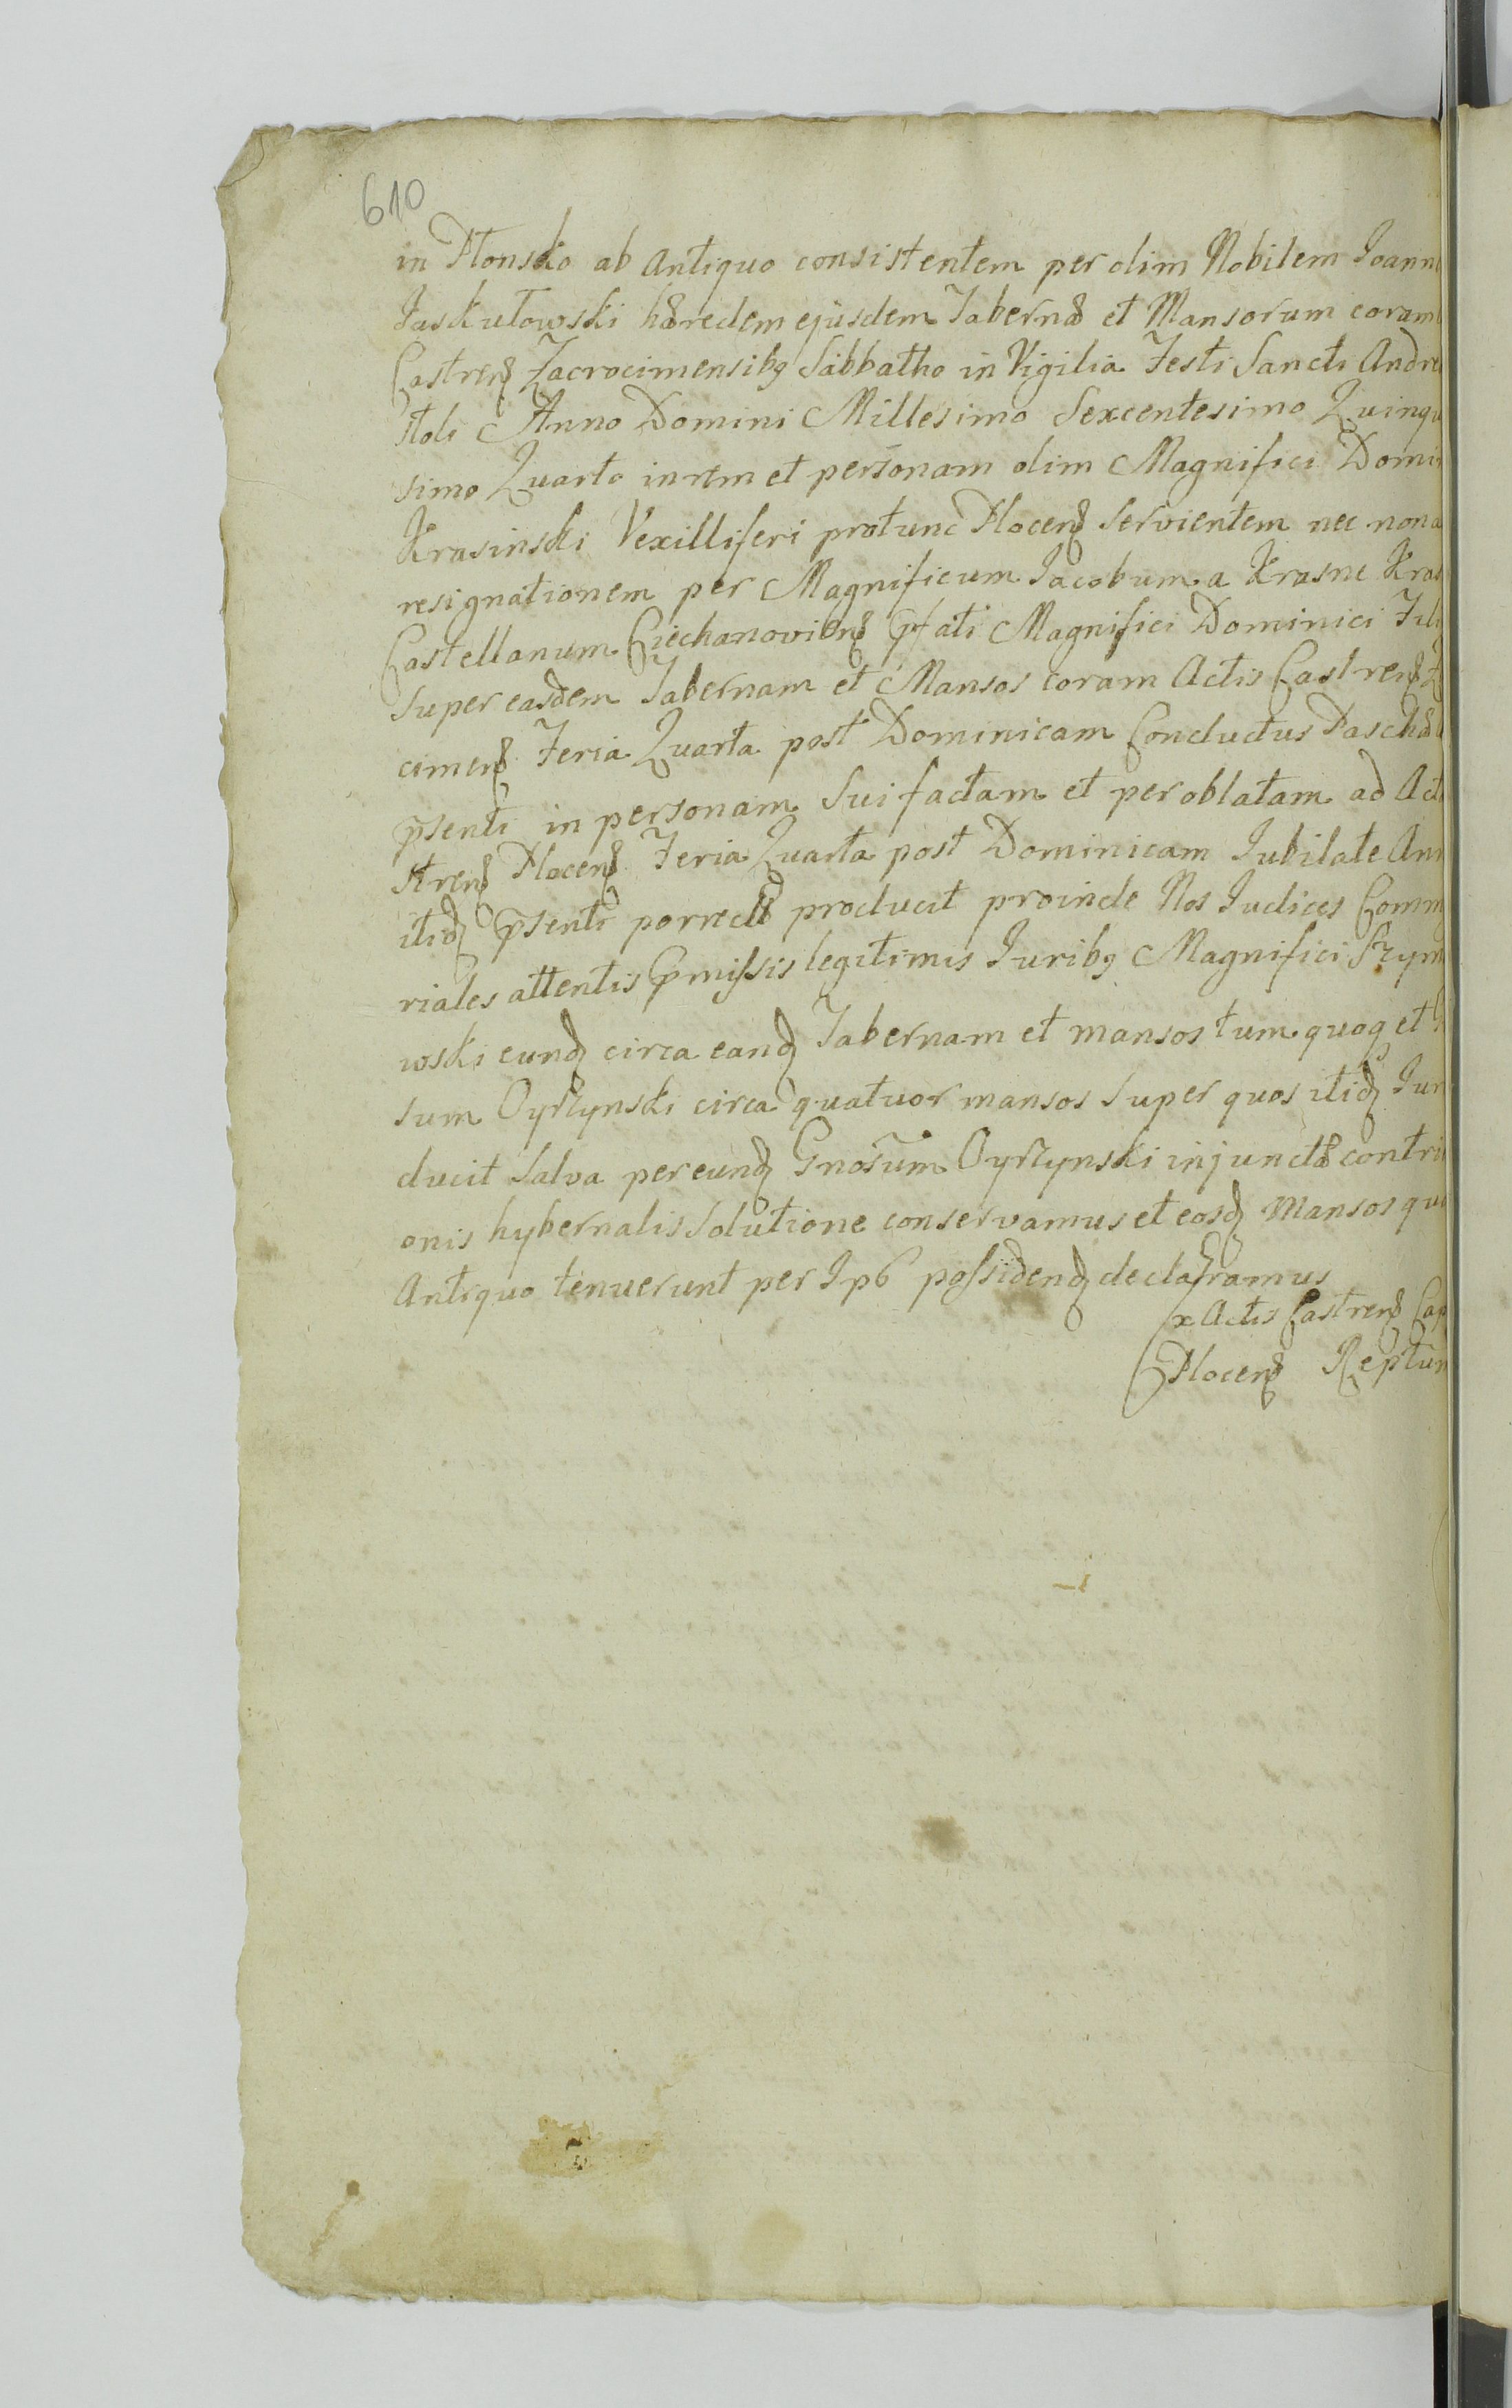 610
in Płonsko ab Antiquo consistentem per olim Nobilem Joann
Jaskułowski hæredem ejusdem Tabernæ et Mansorum coram
Castren Zacrocimensibq Sabbatho in Vigilia Festi Sancti Andre
stoli Anno Domini Millesimo Sexcentesimo Quinqu
simo Quarto in rem et personam olim Magnifici Domi
Krasinski Vexilliferi protunc Plocen Servientem nec non
resignationem per Magnificum Jacobum a Krasne Kras
Castellanum Ciechanovien pfati Magnifici Dominici Fili
Super easdem Tabernam et Mansos coram Actis Castren
cimen Feria Quarta post Dominicam Conductus Paschæ
pSenti in personam Sui factam et per oblatam ad Act
stren Plocen Feria Quarta post Dominicam Jubilate An
itid pSenti porrectæ producit proinde Nos Judices Comm
riales attentis pmissis legitimis Juribq Magnifici
wski eund circa eand Tabernam et mansos tum quoq et
sum Oyrzynski circa quatuor mansos Super quos itid Jur
ducit Salva per eund Gnosum Oyrzynski injunctæ contri
onis hybernalis Solutione conservamus et eosd Mansos qu
Antiquo tenuerunt per Ips possidend declaramus
Ex Actis Castren Cap
Plocen Reptum